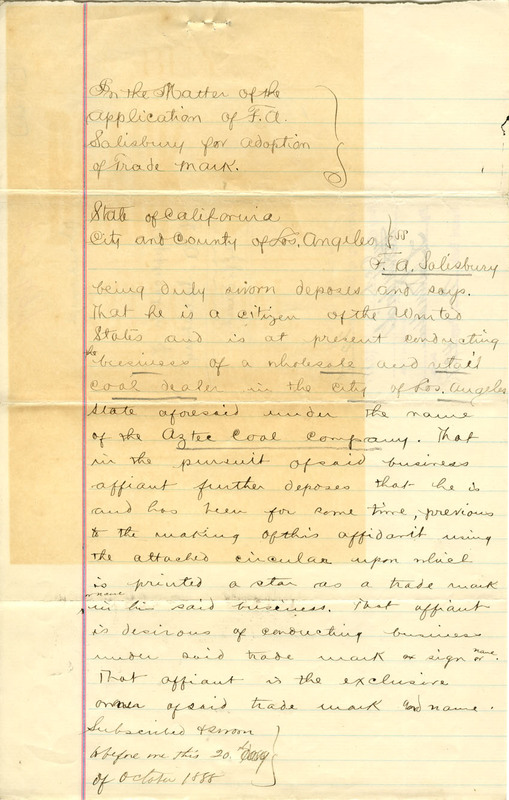 In the Matter of the
application of F. A.
Salisbury for adoption
of Trade Mark.
State of California
City and County of Los Angeles } ss
F. A. Salisbury
being duly sworn deposes and says.
That he is a citizen of the United
States and is at present conducting
the business of a wholesale and retail
coal dealer in the city of Los Angeles
State aforesaid under the name
of the Aztec Coal Company. That
in the pursuit of said business
affiant further deposes that he is
and has been for some time, previous
to the making of this affidavit using
the attached circular upon which
is printed a star as a trade mark
or name in his said business. That affiant
is desirous of conducting business
under said trade mark or sign or name.
That affiant is the exclusive
owner of said trade mark and name.
Subscribed & sworn
to before me this 20th day
of October 1888